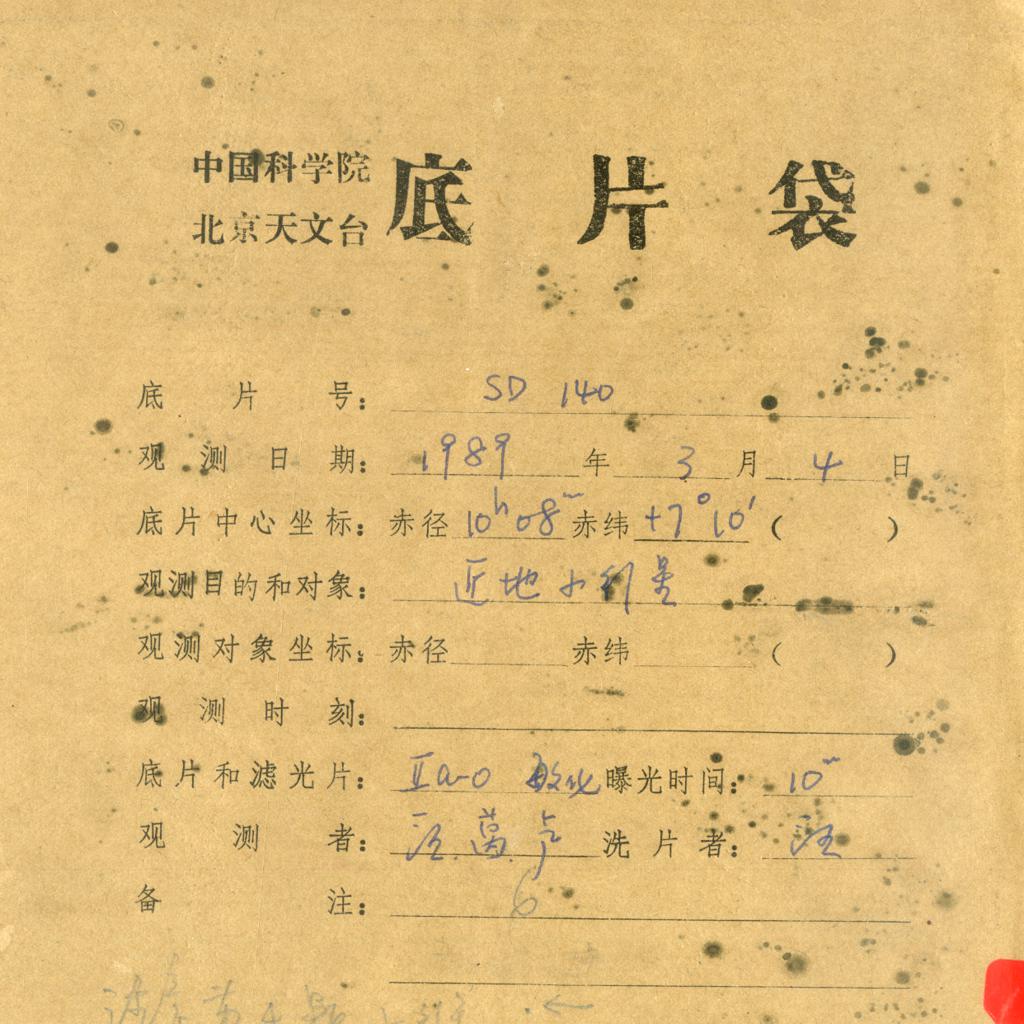 中国科学院
北京天文台
底片袋
底片号：SD 140
观测日期：1989年3月4日
底片中心坐标：赤径10ʰ08ᵐ赤纬+7°10′（ ）
观测目的和对象：近地小行星
观测对象坐标：赤径 赤纬 （ ）
观测时刻：
底片和滤光片：IIa-O 敏化 曝光时间：10ᵐ
观测者：汪.萬.卢 洗片者：汪
备注：6